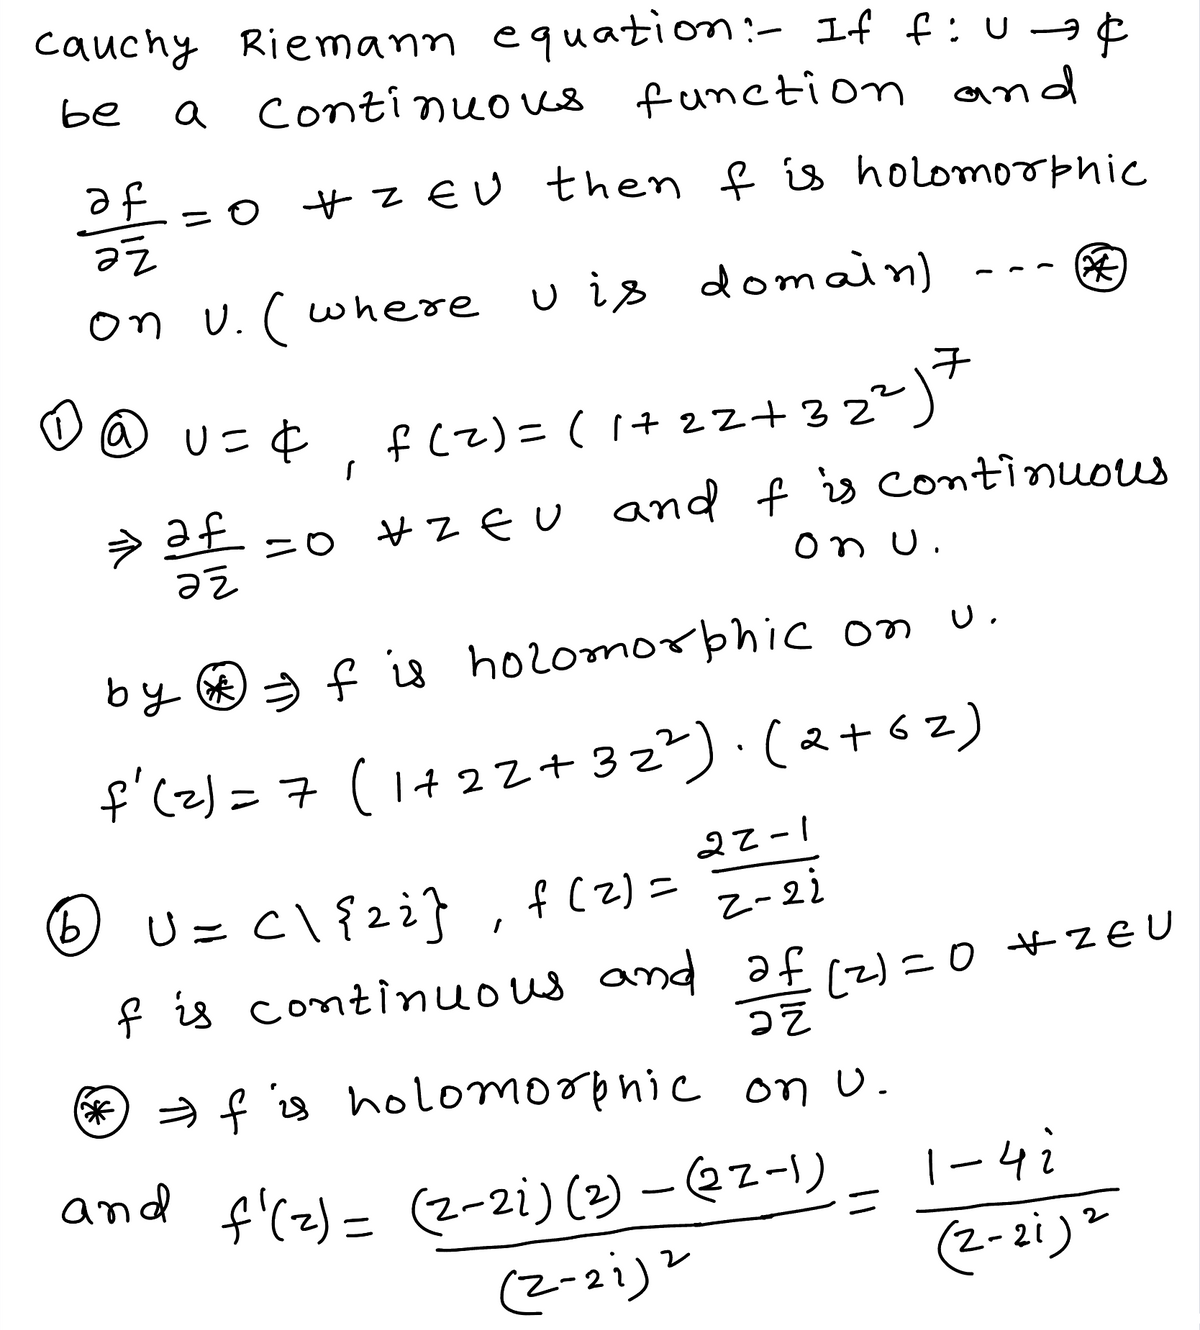 Cauchy Riemann equation:- If f: U → ₵
be a continuous function and
∂f/∂z̄ = 0 ∀ z ∈ U then f is holomorphic
on U. (where U is domain) --- ⊛
① ⓐ U = ₵ , f(z) = (1+2z+3z²)⁷
⇒ ∂f/∂z̄ = 0 ∀ z ∈ U and f is continuous
on U.
by ⊛ ⇒ f is holomorphic on U.
f'(z) = 7 (1+2z+3z²) · (2+6z)
ⓑ U = C\{2i} , f(z) = (2z-1)/(z-2i)
f is continuous and ∂f/∂z̄ (z) = 0 ∀ z ∈ U
⊛ ⇒ f is holomorphic on U.
and f'(z) = ((z-2i)(2) - (2z-1))/(z-2i)² = (1-4i)/(z-2i)²